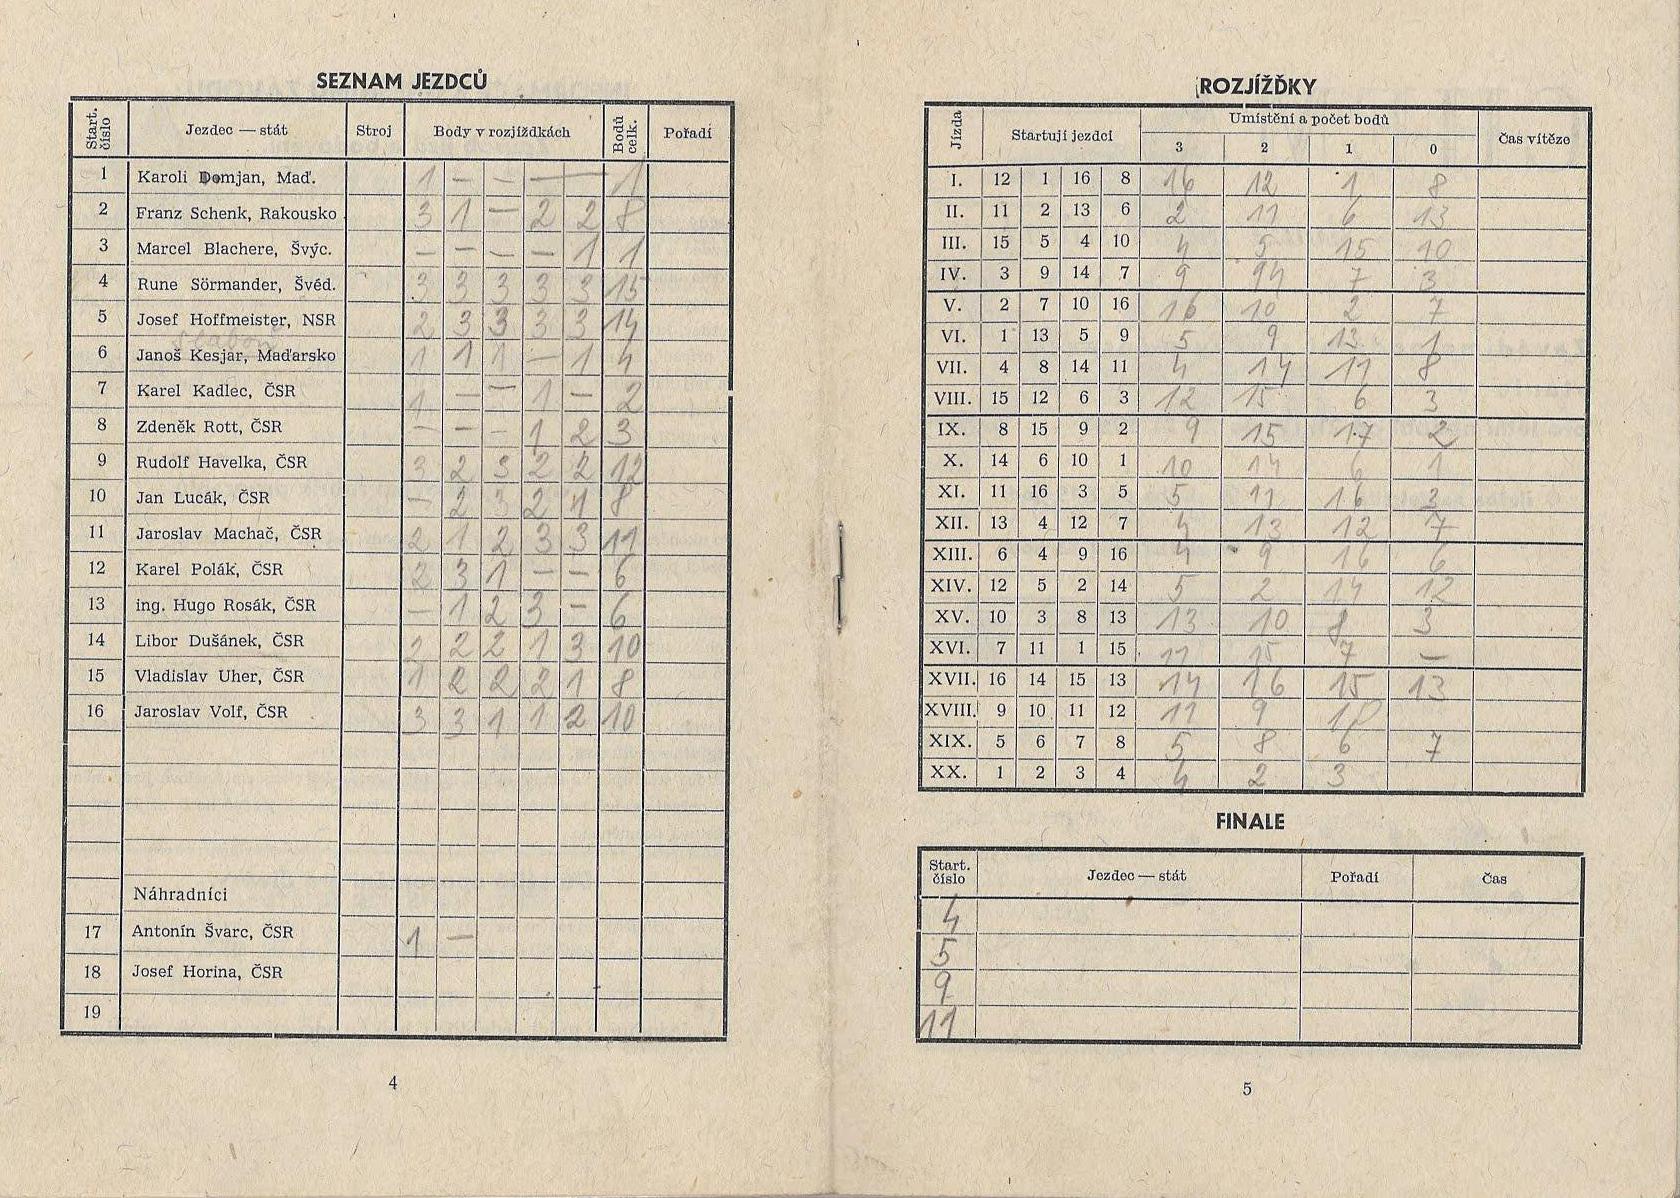 SEZNAM JEZDCŮ
Start. číslo Jezdec — stát Stroj Body v rozjíždkách Bodů celk. Pořadí
1 Karoli Domjan, Maď. 1 — — — 1
2 Franz Schenk, Rakousko 3 1 — 2 2 8
3 Marcel Blachere, Švýc. — — — — 1 1
4 Rune Sörmander, Švéd. 3 3 3 3 3 15
5 Josef Hoffmeister, NSR 2 3 3 3 3 14
6 Janoš Kesjar, Maďarsko 1 1 1 — 1 4
7 Karel Kadlec, ČSR 1 — — 1 — 2
8 Zdeněk Rott, ČSR — — — 1 2 3
9 Rudolf Havelka, ČSR 3 2 3 2 2 12
10 Jan Lucák, ČSR — 2 3 2 1 8
11 Jaroslav Machač, ČSR 2 1 2 3 3 11
12 Karel Polák, ČSR 2 3 1 — — 6
13 ing. Hugo Rosák, ČSR — 1 2 3 — 6
14 Libor Dušánek, ČSR 2 2 2 1 3 10
15 Vladislav Uher, ČSR 1 2 2 2 1 8
16 Jaroslav Volf, ČSR 3 3 1 1 2 10
Náhradníci
17 Antonín Švarc, ČSR 1 —
18 Josef Horina, ČSR
19
4
ROZJÍŽĎKY
Jízda Startují jezdci Umístění a počet bodů Čas vítěze
3 2 1 0
I. 12 1 16 8 16 12 1 8
II. 11 2 13 6 2 11 6 13
III. 15 5 4 10 4 5 15 10
IV. 3 9 14 7 9 14 7 3
V. 2 7 10 16 16 10 2 7
VI. 1 13 5 9 5 9 13 1
VII. 4 8 14 11 4 14 11 8
VIII. 15 12 6 3 12 15 6 3
IX. 8 15 9 2 9 15 17 2
X. 14 6 10 1 10 14 6 1
XI. 11 16 3 5 5 11 16 3
XII. 13 4 12 7 4 13 12 7
XIII. 6 4 9 16 4 9 16 6
XIV. 12 5 2 14 5 2 14 12
XV. 10 3 8 13 13 10 8 3
XVI. 7 11 1 15 11 15 7 —
XVII. 16 14 15 13 14 16 15 13
XVIII. 9 10 11 12 11 9 10
XIX. 5 6 7 8 5 8 6 7
XX. 1 2 3 4 4 2 3
FINALE
Start. číslo Jezdec — stát Pořadí Čas
4
5
9
11
5